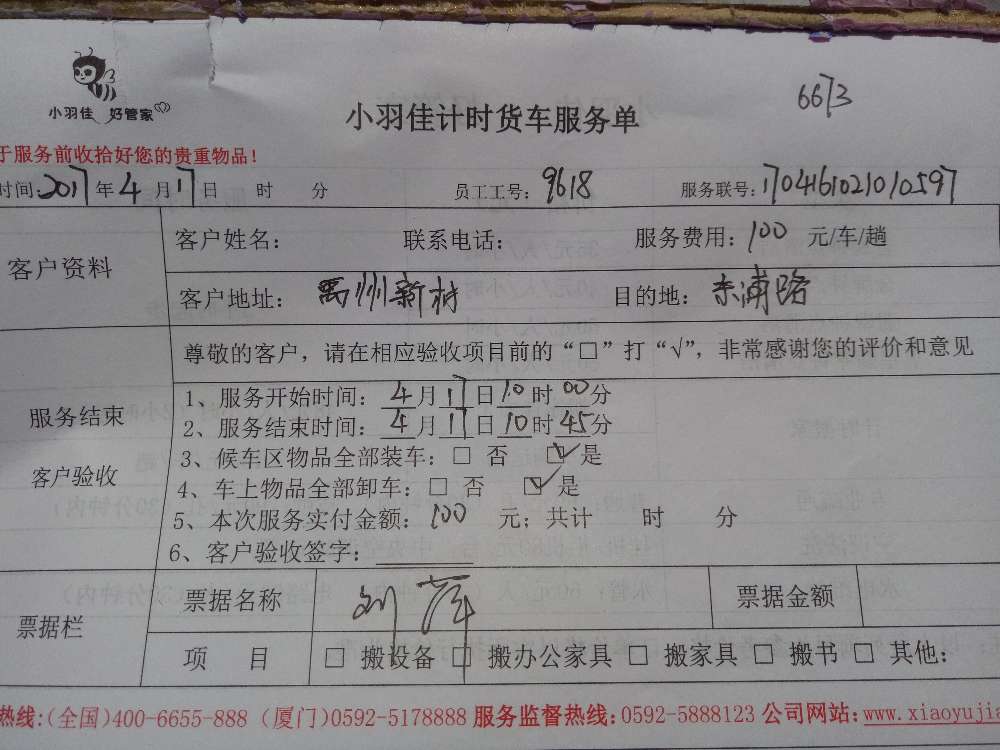 小羽佳 好管家
小羽佳计时货车服务单
6673
于服务前收拾好您的贵重物品!
时间:2017年4月17日 时 分 员工工号:9618 服务联号:1704161021010597
客户资料
客户姓名: 联系电话: 服务费用:100 元/车/趟
客户地址: 禹州新村 目的地: 东浦路
服务结束
客户验收
尊敬的客户，请在相应验收项目前的“□”打“√”，非常感谢您的评价和意见
1、服务开始时间: 4月17日10时00分
2、服务结束时间: 4月17日10时45分
3、候车区物品全部装车: □ 否 ☑ 是
4、车上物品全部卸车: □ 否 ☑ 是
5、本次服务实付金额: 100 元; 共计 时 分
6、客户验收签字:
票据栏
票据名称 票据金额
项 目 □ 搬设备 □ 搬办公家具 □ 搬家具 □ 搬书 □ 其他:
热线:(全国)400-6655-888 (厦门)0592-5178888 服务监督热线:0592-5888123 公司网站:www.xiaoyujia